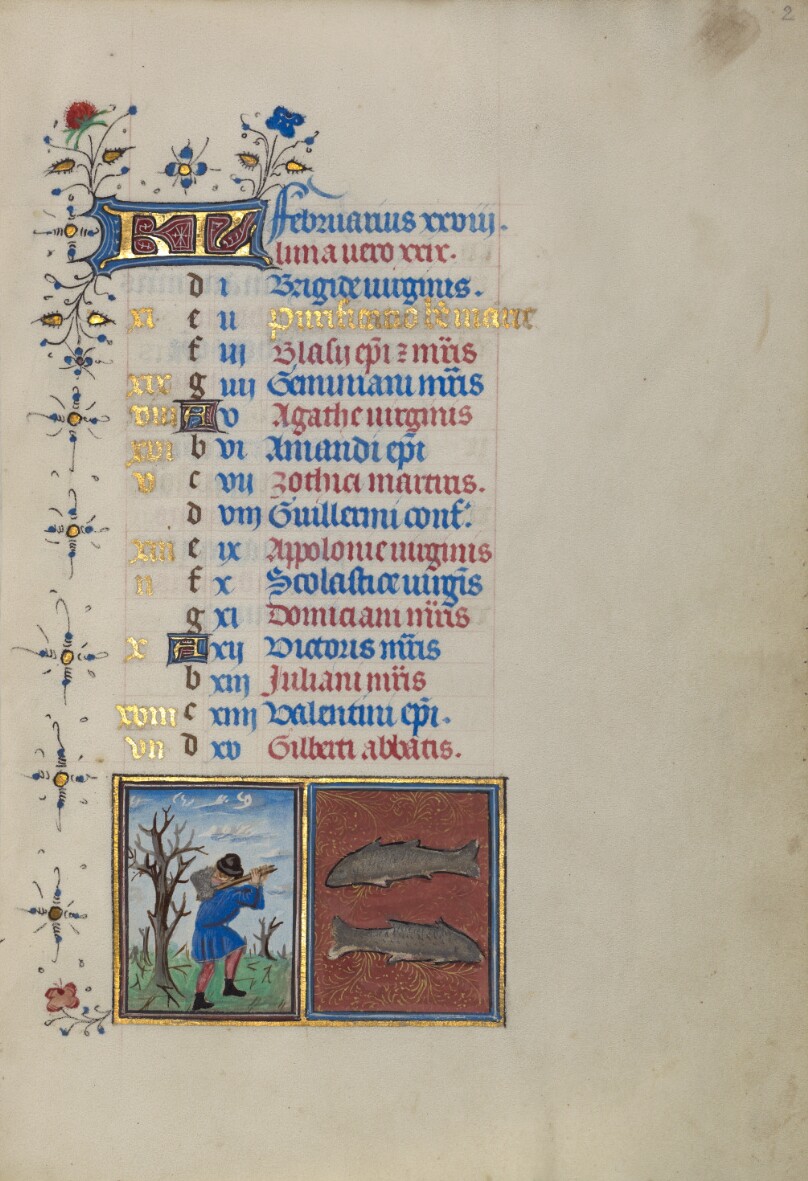 2
KL februarius xxviij.
luna uero xxix.
d i Brigide uirginis.
xi e ii Purificatio bẽ marie
f iij Blasij ep̃i ⁊ mr̃is
xix g iiij Geminiani mr̃is
viii A v Agathe uirginis
xvi b vi Amandi ep̃i
v c vii Zothici martiris.
d viij Guillermi conf.
xiii e ix Appolonie uirginis
ii f x Scolastice uirgĩs
g xi Domiciani mr̃is
x A xij Victoris mr̃is
b xiij Juliani mr̃is
xviii c xiiij Valentini ep̃i.
vii d xv Gilberti abbatis.